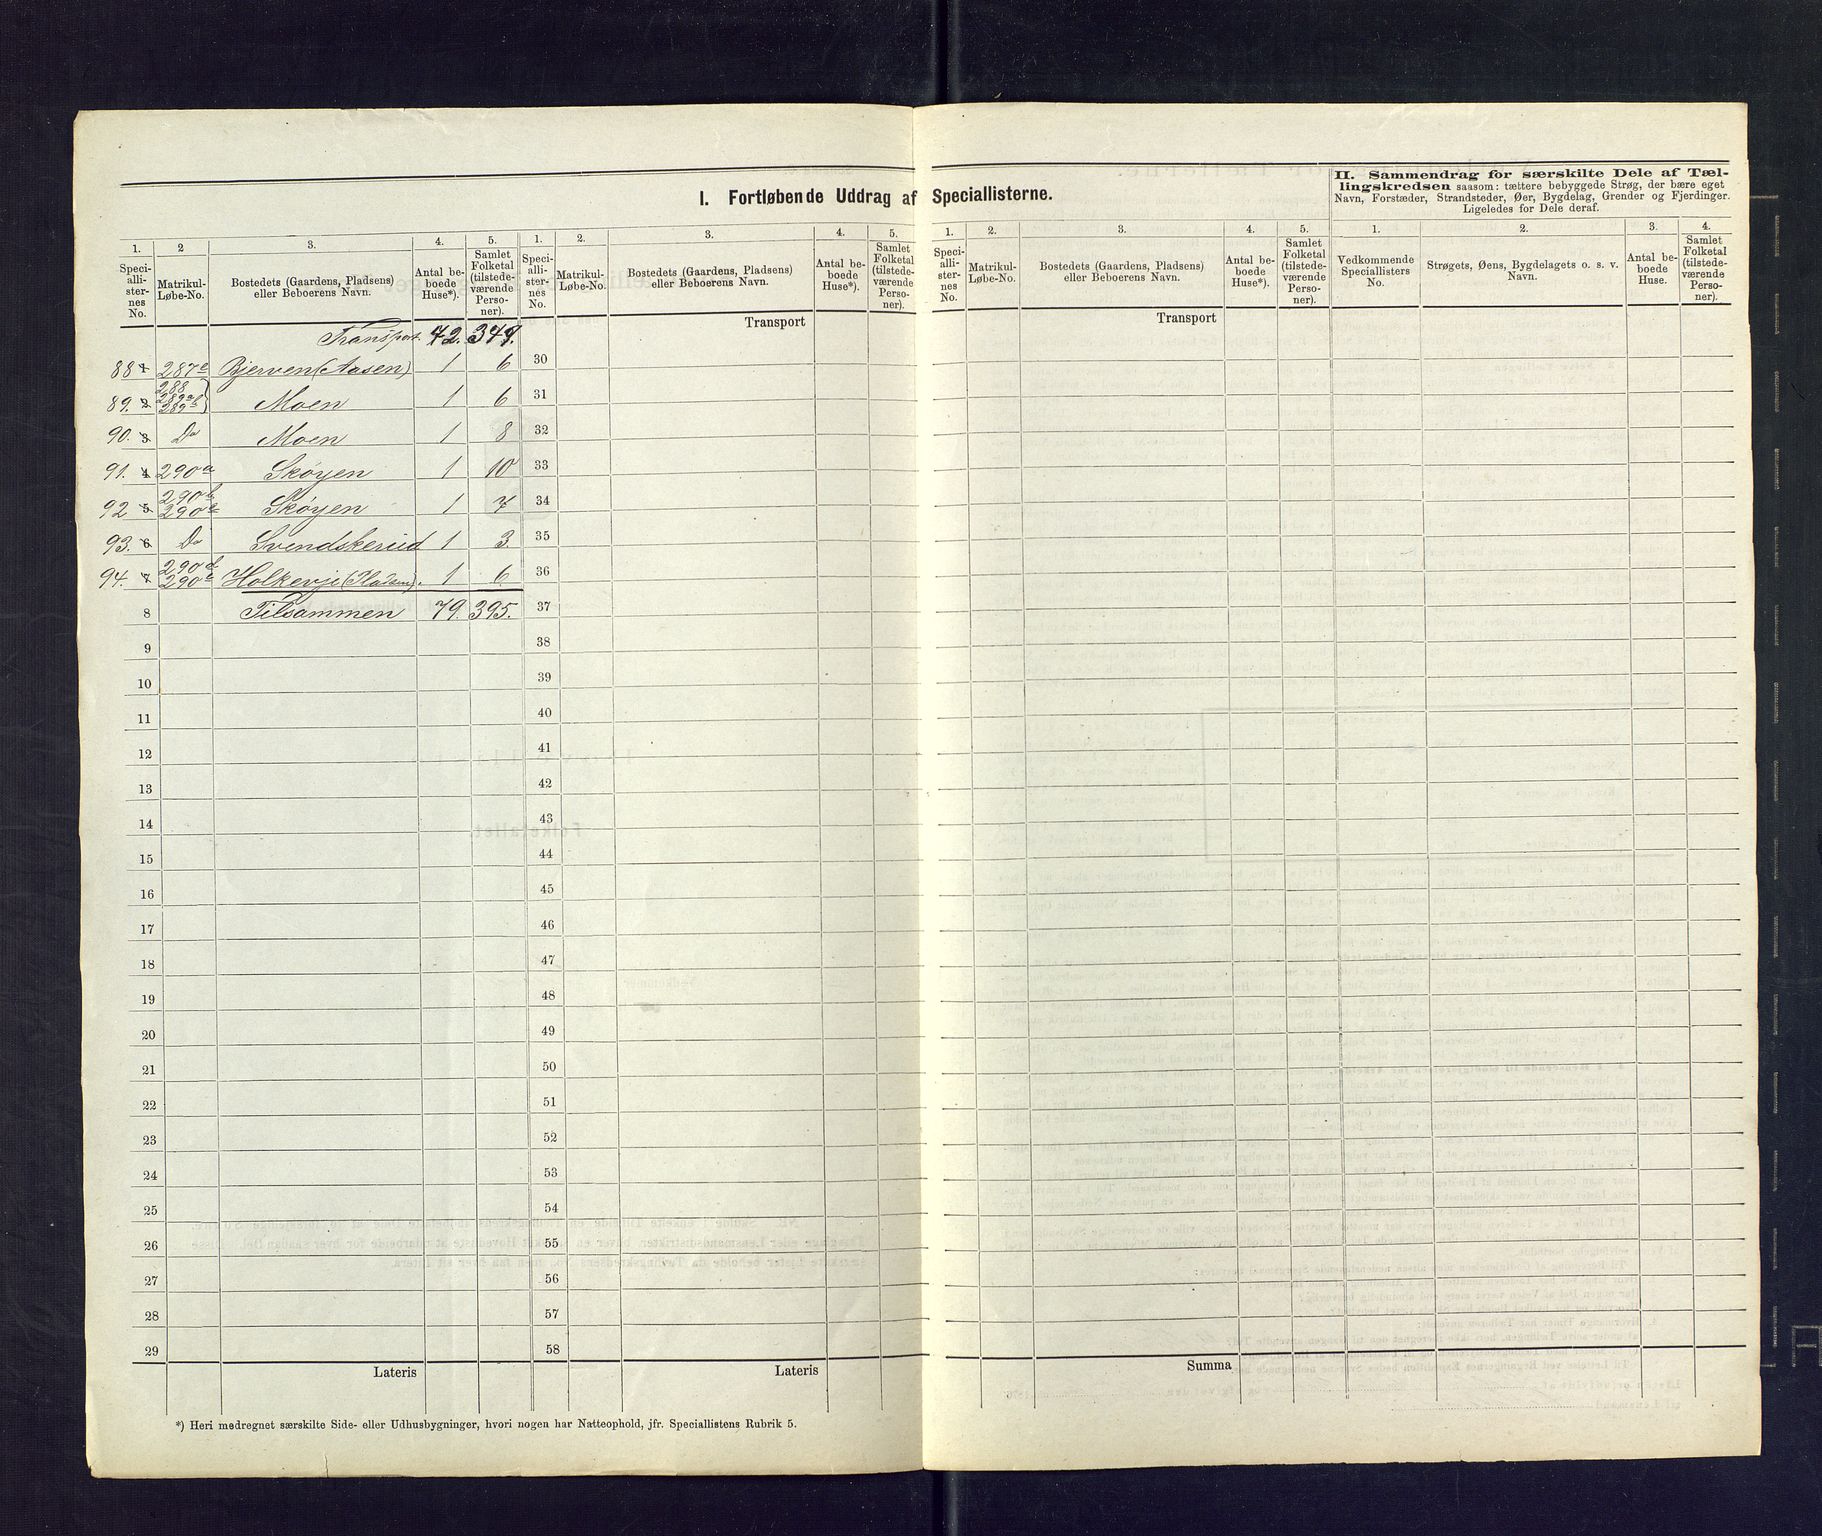 I. Fortløbende Uddrag af Speciallisterne.
II. Sammendrag for særskilte Dele af Tællingskredsen saasom: tættere bebyggede Strøg, der bære eget Navn, Forstæder, Strandsteder, Øer, Bygdelag, Grender og Fjerdinger. Ligeledes for Dele deraf.
1. 2 3. 4. 5. 1. 2. 3. 4. 5. 1. 2. 3. 4. 5. 1. 2. 3. 4.
Speciallisternes No. Matrikul-Løbe-No. Bostedets (Gaardens, Pladsens) eller Beboerens Navn. Antal beboede Huse*). Samlet Folketal (tilstedeværende Personer).
Speciallisternes No. Matrikul-Løbe-No. Bostedets (Gaardens, Pladsens) eller Beboerens Navn. Antal beboede Huse*). Samlet Folketal (tilstedeværende Personer).
Speciallisternes No. Matrikul-Løbe-No. Bostedets (Gaardens, Pladsens) eller Beboerens Navn. Antal beboede Huse*). Samlet Folketal (tilstedeværende Personer).
Vedkommende Speciallisters No. Strøgets, Øens, Bygdelagets o. s. v. Navn. Antal beboede Huse. Samlet Folketal (tilstedeværende Personer).
Transport. 72. 349. Transport Transport
88 1 287c Bjerven (Aasen) 1 6 30
89. 2 288 289a 289b Moen 1 6 31
90. 3 Do Moen 1 8 32
91. 4 290a Skøyen 1 10 33
92 5 290b 290c Skøyen 1 7 34
93. 6 Do Svendskerud 1 3. 35
94. 7 290d 290e Holkevje (Pladsen). 1 6. 36
8 Tilsammen 79. 395. 37
9 38
10 39
11 40
12 41
13 42
14 43
15 44
16 45
17 46
18 47
19 48
20 49
21 50
22 51
23 52
24 53
25 54
26 55
27 56
28 57
29 58
Lateris Lateris Summa
*) Heri medregnet særskilte Side- eller Udhusbygninger, hvori nogen har Natteophold, jfr. Speciallistens Rubrik 5.